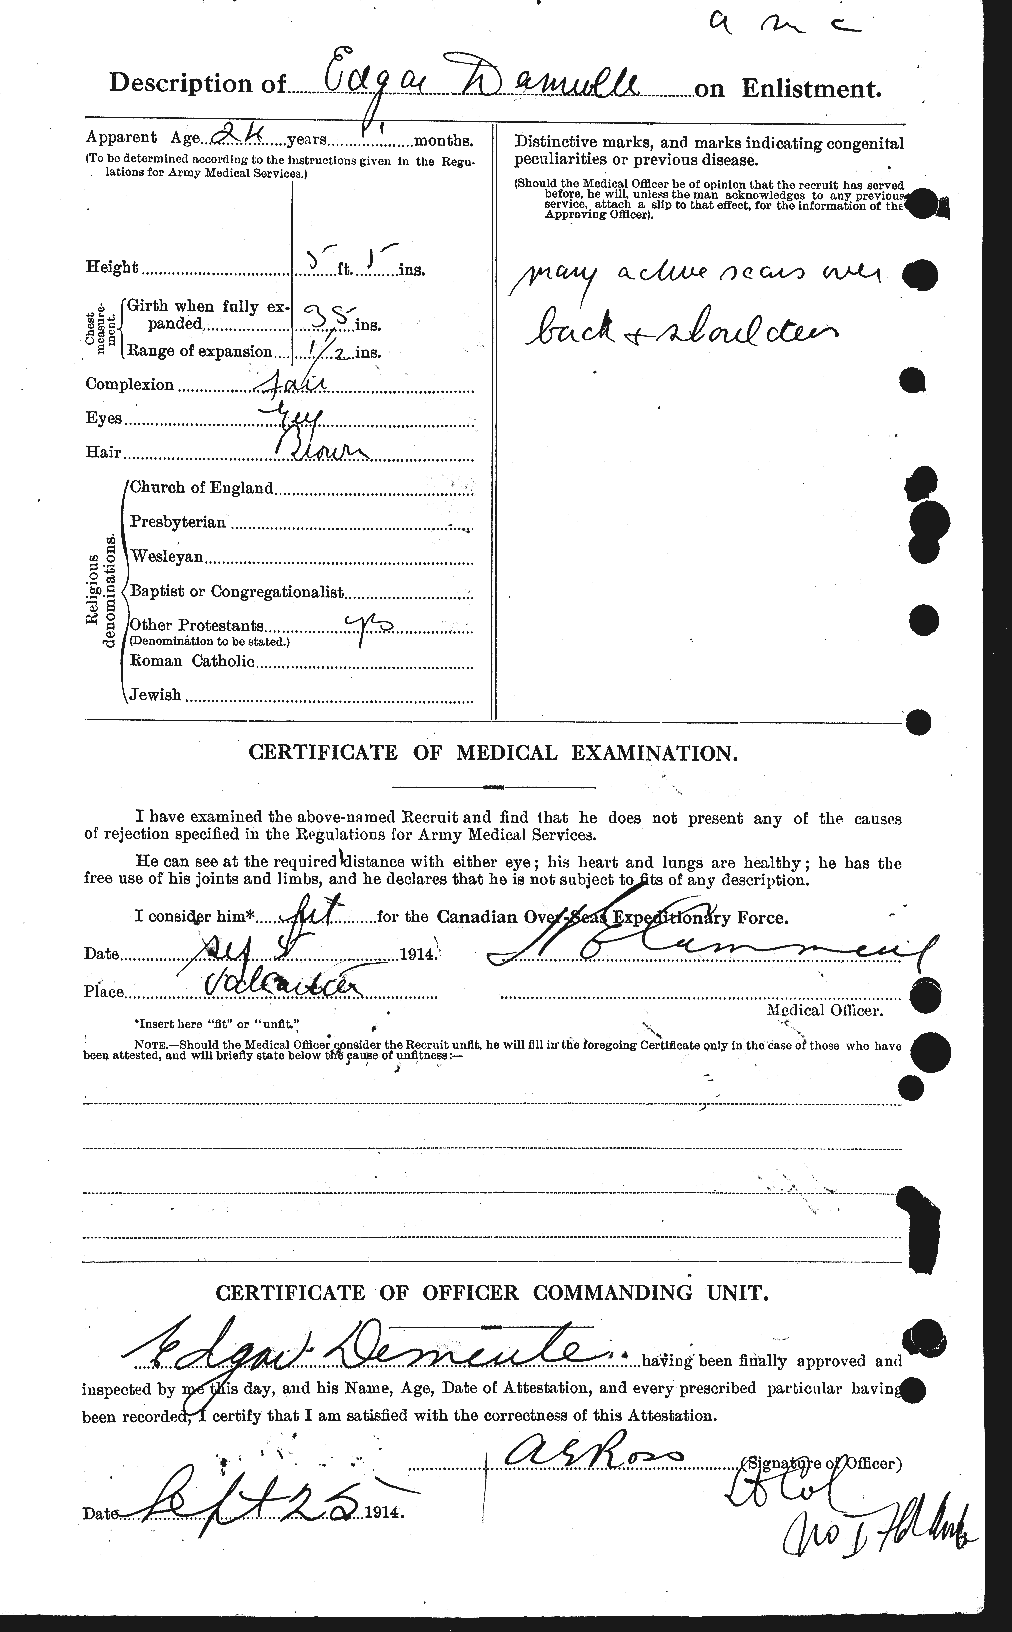 a m c
Description of Edgar on Enlistment.
Apparent Age 24 years months.
(To be determined according to the instructions given in the Regu-
lations for Army Medical Services.)
Height 5 ft. 5 ins.
Chest measure-
ment.
Girth when fully ex-
panded 35 ins.
Range of expansion 1/2 ins.
Complexion fair
Eyes Grey
Hair Brown
Religious
denominations.
Church of England
Presbyterian
Wesleyan
Baptist or Congregationalist
Other Protestants yes
(Denomination to be stated.)
Roman Catholic
Jewish
Distinctive marks, and marks indicating congenital
peculiarities or previous disease.
(Should the Medical Officer be of opinion that the recruit has served
before, he will, unless the man acknowledges to any previous
service, attach a slip to that effect, for the information of the
Approving Officer).
many active scars over
back + shoulders
CERTIFICATE OF MEDICAL EXAMINATION.
I have examined the above-named Recruit and find that he does not present any of the causes
of rejection specified in the Regulations for Army Medical Services.
He can see at the required distance with either eye; his heart and lungs are healthy; he has the
free use of his joints and limbs, and he declares that he is not subject to fits of any description.
I consider him* fit for the Canadian Over-Seas Expeditionary Force.
Date 1914.
Place Valcartier
Medical Officer.
*Insert here "fit" or "unfit."
NOTE.—Should the Medical Officer consider the Recruit unfit, he will fill in the foregoing Certificate only in the case of those who have
been attested, and will briefly state below the cause of unfitness:—
CERTIFICATE OF OFFICER COMMANDING UNIT.
Edgar having been finally approved and
inspected by me this day, and his Name, Age, Date of Attestation, and every prescribed particular having
been recorded, I certify that I am satisfied with the correctness of this Attestation.
A E Ross (Signature of Officer)
Lt Col
Date Sept 25 1914.
No I Fld Amb